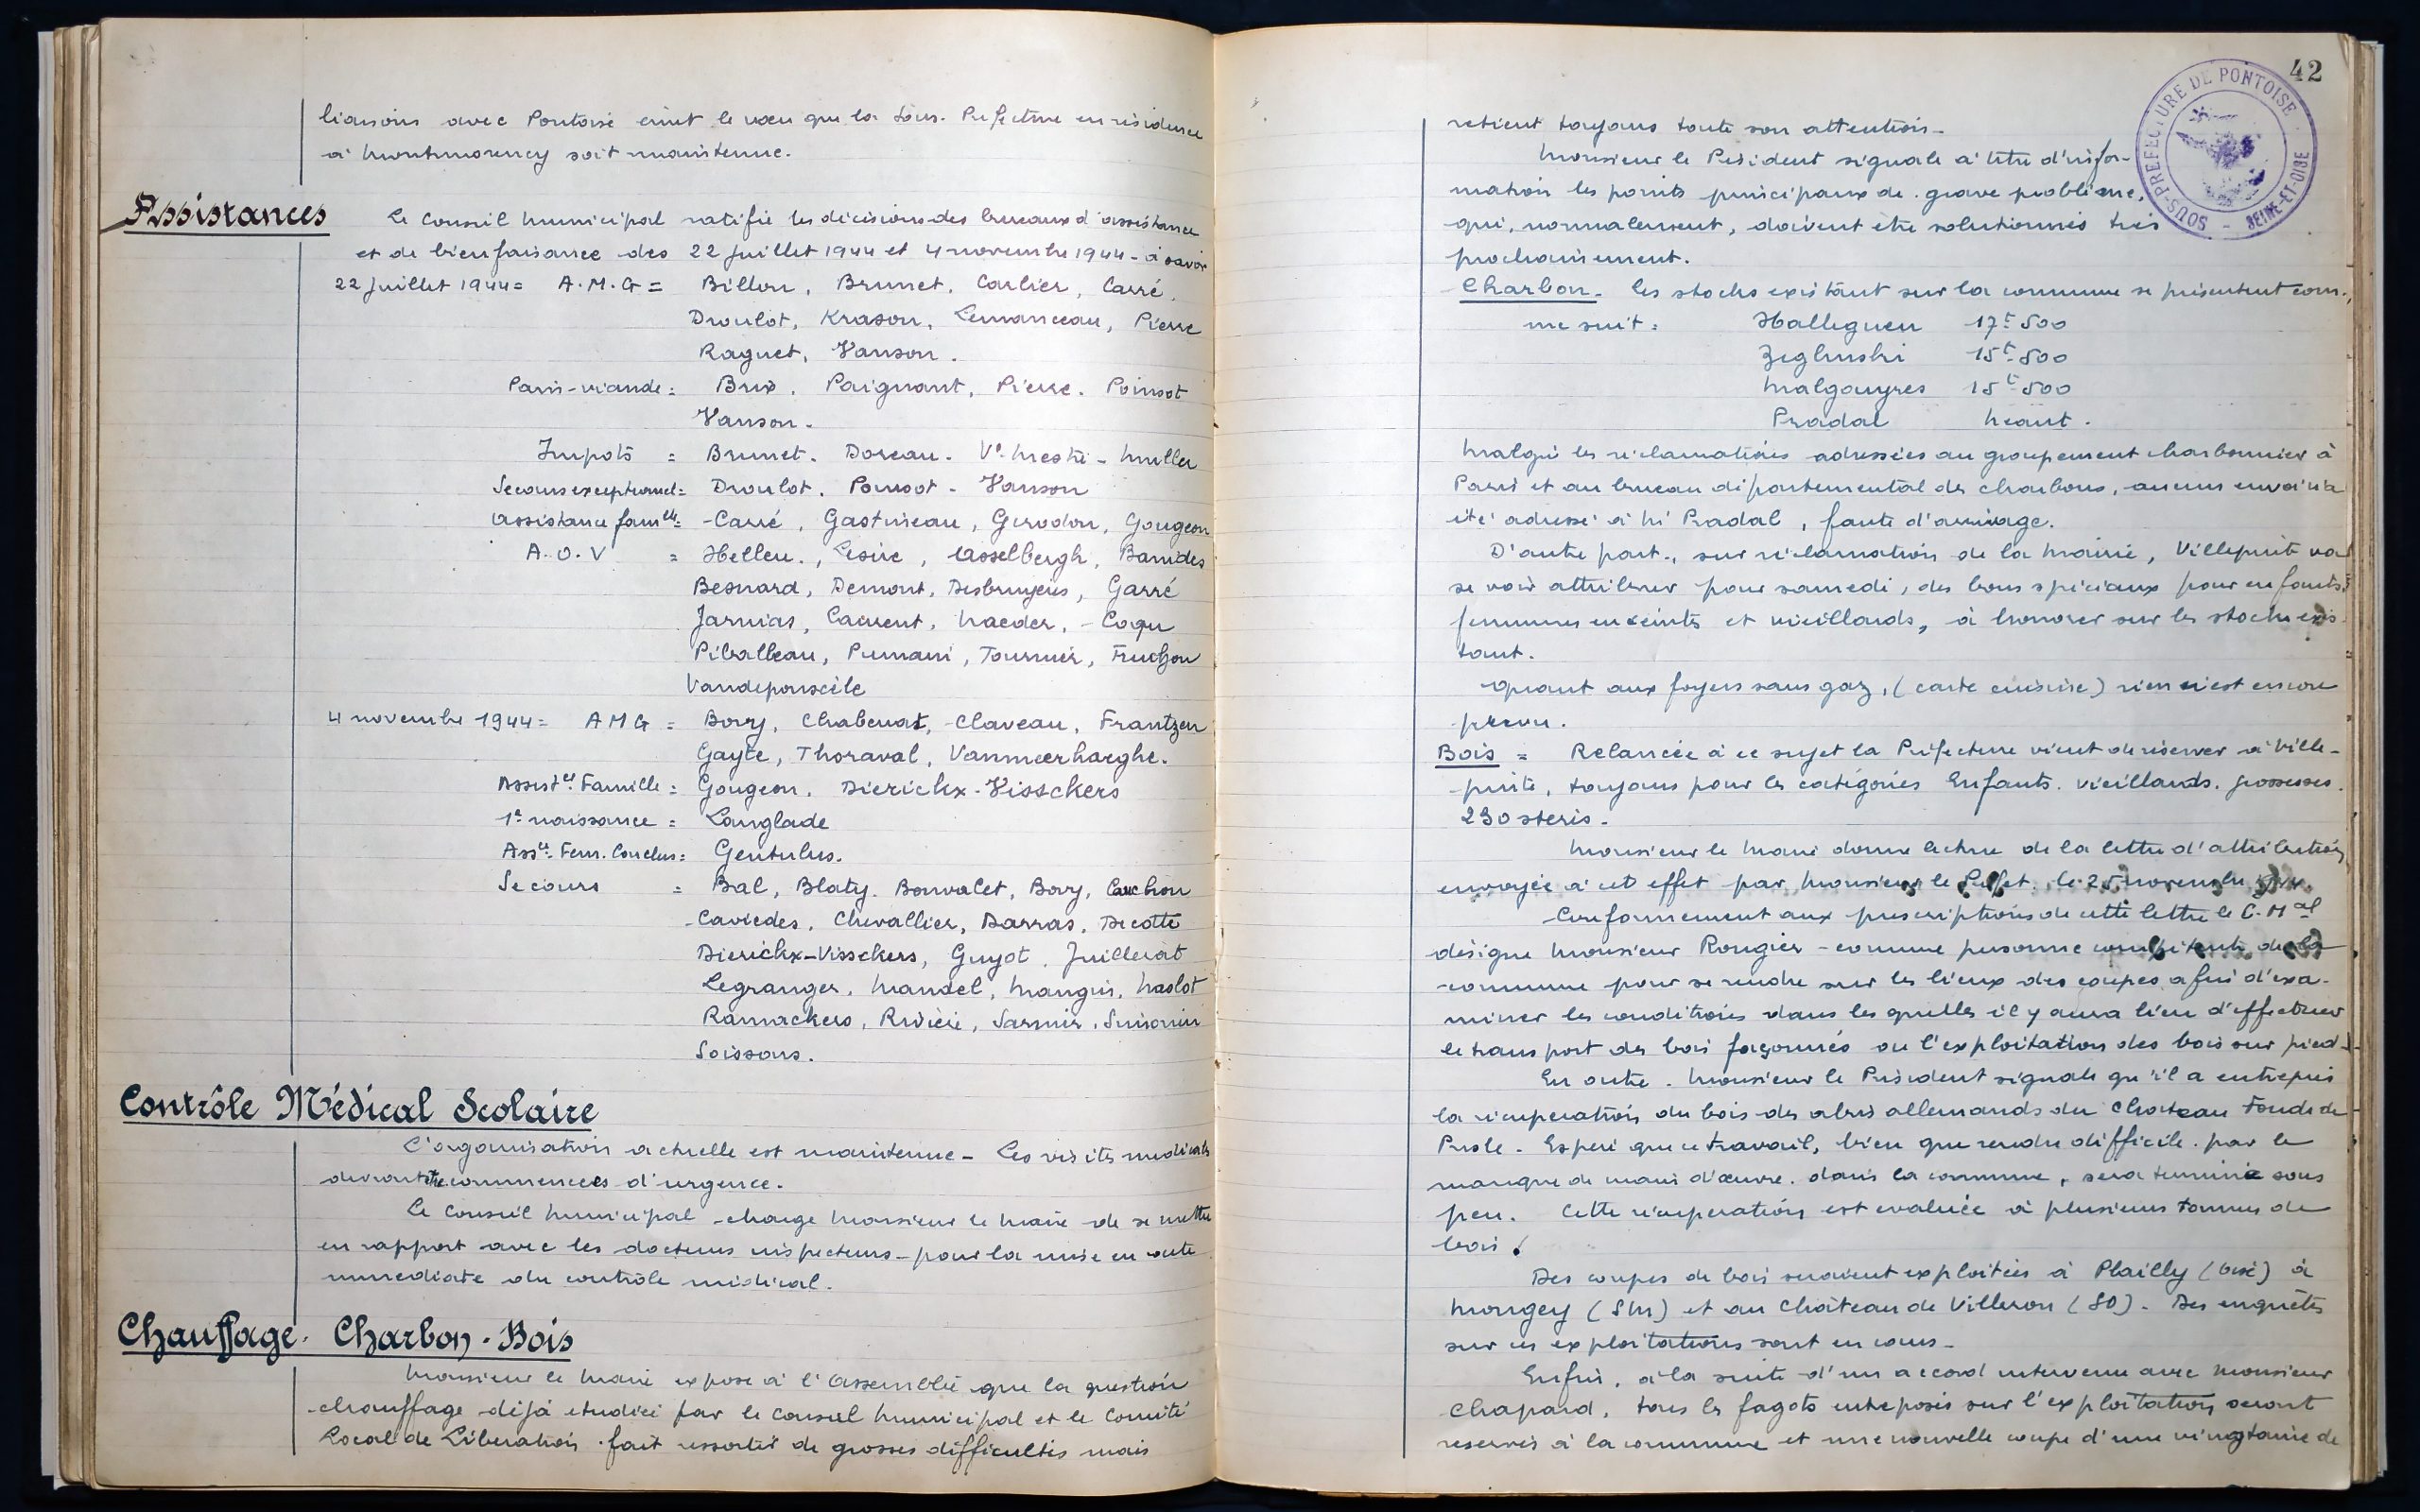 liaisons avec Pontoise émet le vœu que la Sous-Préfecture en résidence
à Montmorency soit maintenue.
Assistances
Le Conseil Municipal ratifie les décisions des bureaux d'assistance
et de bienfaisance des 22 Juillet 1944 et 4 novembre 1944 - à savoir
22 Juillet 1944 = A.M.G = Billon, Brunet, Carlier, Carré,
Droulot, Krason, Lemanceau, Pierre
Raguet, Vanson.
Pain-viande = Brix, Paignant, Pierre, Poinsot
Vanson.
Impots = Brunet. Doreau. Ve Mestre - Muller
Secours exceptionnel = Droulot, Poinsot - Vanson
Assistance famlle = Carré, Gastineau, Girodon, Gougeon
A.O.V = Helleu, Lesire, Asselbergh, Barrides
Besnard, Demont, Desbruyères, Garré
Jarnias, Laurent, Maeder, Coqu
Piballeau, Pumani, Tournier, Truchon
Vandepouscèle
4 novembre 1944 = AMG = Bory, Chabenat, Claveau, Frantzen
Gayte, Thoraval, Vanmeerhaeghe.
Assistce Famille = Gougeon, Dierickx-Visschers
1e naissance = Langlade
Assce Fem. Couches = Gentulus.
Secours = Bal, Blaty, Bonvalet, Bory, Cauchon
Caviedes, Chevallier, Darras, Decotte
Dierickx-Visschers, Guyot, Juillerat
Legranger, Mandel, Mangin, Maslot
Ramackers, Rivière, Sarmir, Simonin
Soissons.
Contrôle Médical Scolaire
L'organisation actuelle est maintenue - Les visites médicales
devront être commencées d'urgence.
Le Conseil Municipal charge Monsieur le Maire de se mettre
en rapport avec les docteurs inspecteurs - pour la mise en route
immédiate du contrôle médical.
Chauffage. Charbon - Bois
Monsieur le Maire expose à l'Assemblée que la question
chauffage déjà étudiée par le Conseil Municipal et le Comité
Local de Libération fait ressortir de grosses difficultés mais
42
SOUS-PREFECTURE DE PONTOISE - SEINE-ET-OISE
retient toujours toute son attention -
Monsieur le Président signale à titre d'infor-
mation les points principaux de grave problème,
qui, normalement, doivent être solutionnés très
prochainement.
Charbon - Les stocks existant sur la commune se présentent com-
me suit : Halleguen 17t 500
Zeglinski 15t 500
Malgouyres 15t 500
Pradal Néant.
Malgré les réclamations adressées au groupement charbonnier à
Paris et au bureau départemental des charbons, aucun envoi n'a
été adressé à Mr Pradal, faute d'arrivage.
D'autre part, sur réclamation de la Mairie, Villepinte va
se voir attribuer pour samedi, des bons spéciaux pour enfants,
femmes enceintes et vieillards, à honorer sur les stocks exis-
tant.
Quant aux foyers sans gaz, (carte cuisine) rien n'est encore
prévu.
Bois = Relancée à ce sujet la Préfecture vient de réserver à Ville-
pinte, toujours pour les catégories Enfants. vieillards. grossesses.
230 stères.
Monsieur le Maire donne lecture de la lettre d'attribution
envoyée à cet effet par Monsieur le Préfet, le 25 novembre 1944.
Conformément aux prescriptions de cette lettre le C. Mal
désigne Monsieur Rougier - comme personne compétente de la
commune pour se rendre sur les lieux des coupes afin d'exa-
miner les conditions dans lesquelles il y aura lieu d'effectuer
le transport des bois façonnés ou l'exploitation des bois sur pied.
En outre. Monsieur le Président signale qu'il a entrepris
la récupération du bois des abris allemands du Chateau Fonds de
Espère que ce travail, bien que rendu difficile par le
manque de main d'œuvre dans la commune, sera terminé sous
peu. Cette récupération est evaluée à plusieurs tonnes de
bois.
Des coupes de bois seraient exploitées à Plailly (Oise) à
(SM) et au Château de Villeron (SO). Des enquêtes
sur ces exploitations sont en cours -
Enfin, à la suite d'un accord intervenu avec Monsieur
Chapard, tous les fagots entreposés sur l'exploitation seront
réservés à la commune et une nouvelle coupe d'une vingtaine de